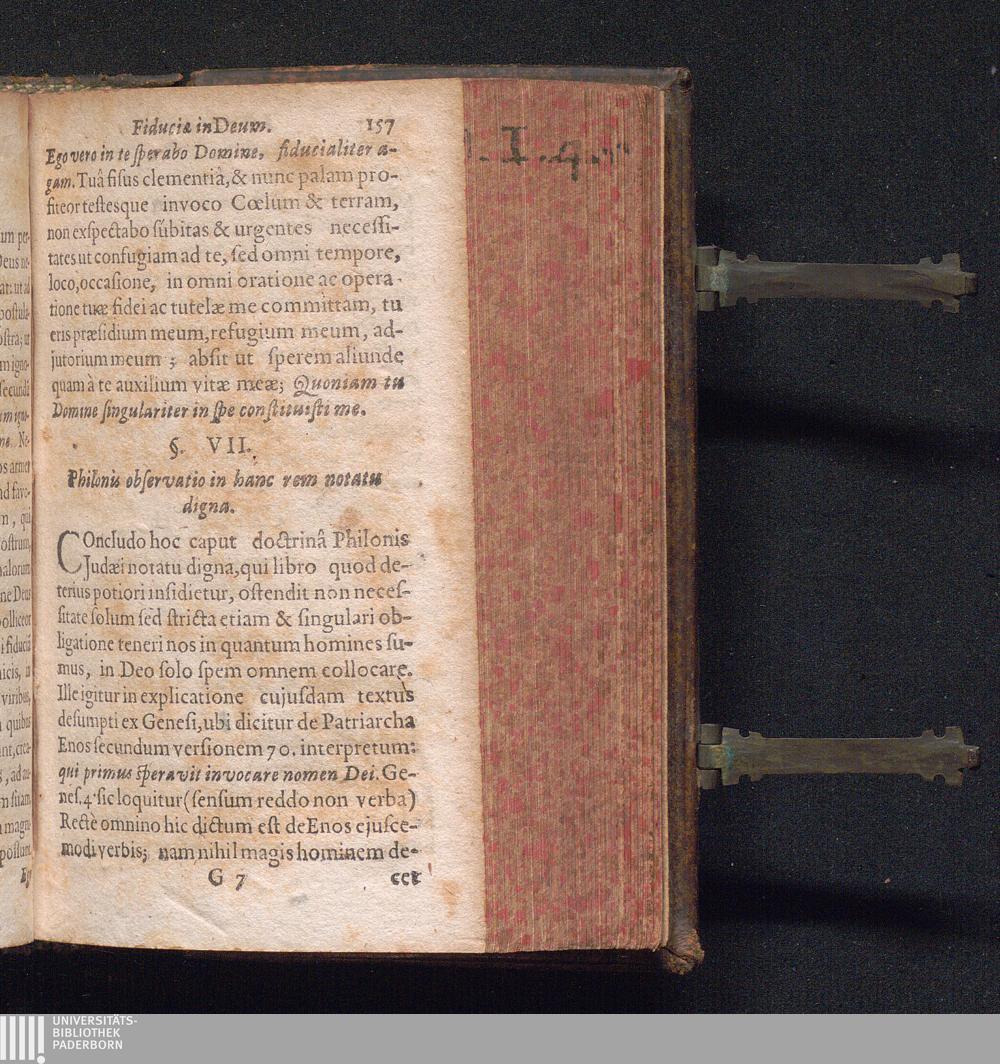 um per
Deus ne
at: ut ad
postula
ostra; ut
m igno-
secundi
ne. Ne-
os armet
nd favo-
n, qui
ostrum,
malorum
ne Deus
olliceor
i fiduciâ
icis, in
viribus,
n quibus
nt, crea-
s, ad au-
n suam
magn-
possunt
Eg
Fiduciæ in Deum. 157
Ego vero in te sperabo Domine, fiducialiter a-
gam. Tuâ fisus clementiâ, & nunc palam pro-
fiteor testesque invoco Cœlum & terram,
non exspectabo subitas & urgentes necessi-
tates ut confugiam ad te, sed omni tempore,
loco, occasione, in omni oratione ac opera-
tione tuæ fidei ac tutelæ me committam, tu
eris præsidium meum, refugium meum, ad-
jutorium meum; absit ut sperem aliunde
quam à te auxilium vitæ meæ; Quoniam tu
Domine singulariter in spe constituisti me.
§. VII.
Philonis observatio in hanc rem notatu
digna.
COncludo hoc caput doctrinâ Philonis
Judæi notatu digna, qui libro quod de-
terius potiori insidietur, ostendit non neces-
sitate solum sed stricta etiam & singulari ob-
ligatione teneri nos in quantum homines su-
mus, in Deo solo spem omnem collocare.
Ille igitur in explicatione cujusdam textus
desumpti ex Genesi, ubi dicitur de Patriarcha
Enos secundum versionem 70. interpretum:
qui primus speravit invocare nomen Dei. Ge-
nes. 4. sic loquitur (sensum reddo non verba)
Rectè omnino hic dictum est de Enos ejusce-
modi verbis; nam nihil magis hominem de-
G 7 cet
UNIVERSITÄTS-
BIBLIOTHEK
PADERBORN